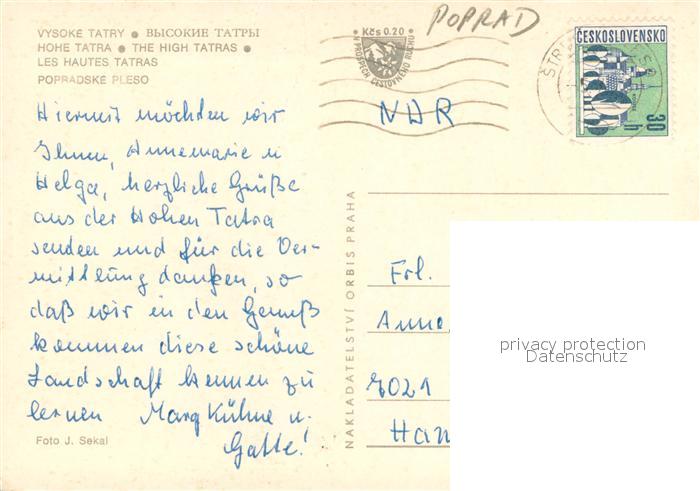 VYSOKÉ TATRY ● ВЫСОКИЕ ТАТРЫ
HOHE TATRA ● THE HIGH TATRAS ●
LES HAUTES TATRAS
POPRADSKÉ PLESO
Hiermit möchten wir
Ihnen, Annemarie u
Helga, herzliche Grüße
aus der Hohen Tatra
senden und für die Ver-
mittlung danken, so
daß wir in den Genuß
kommen diese schöne
Landschaft kennen zu
lernen Marg Kühne u.
Gatte!
Foto J. Sekal
Kčs 0.20
VE PROSPĚCH CESTOVNÉHO RUCHU
POPRAD
ČESKOSLOVENSKO
30 h
ŠTR
NDR
NAKLADATELSTVÍ ORBIS PRAHA
Frl.
Anne
7021
Han
privacy protection
Datenschutz